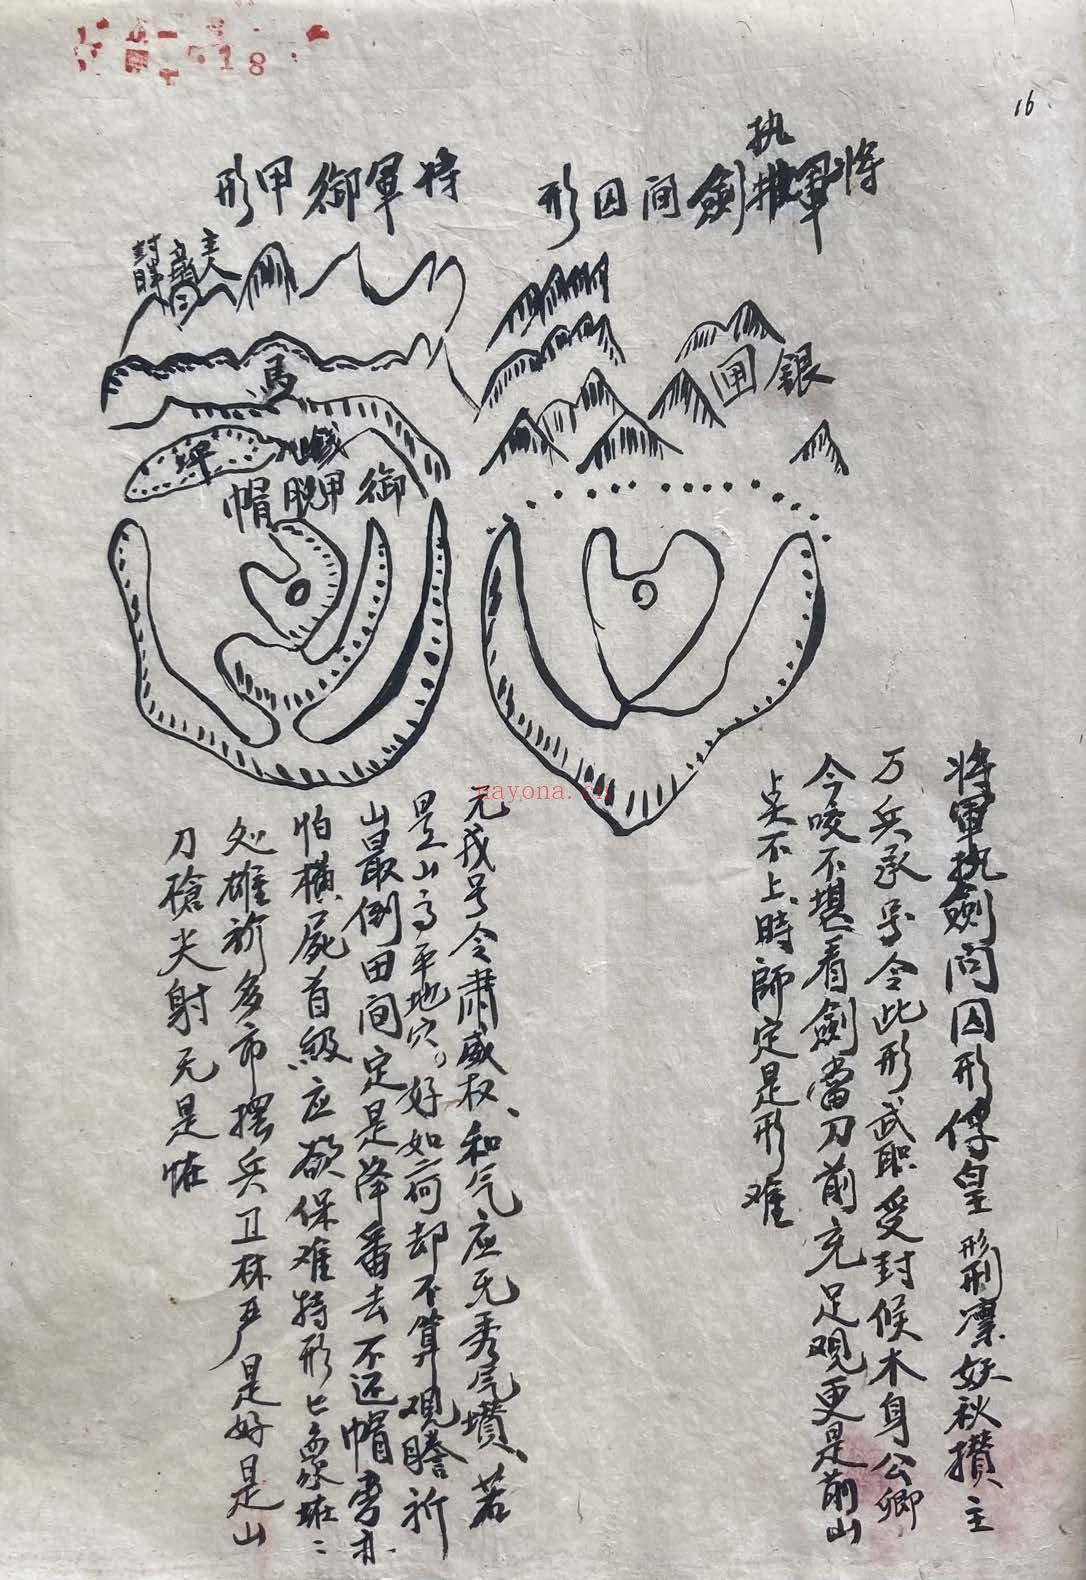 16
18
将軍执劍问囚形
将軍御甲形
銀
匣
主人
封
馬
坪
御甲脫帽
nayona.cn
将軍执劍问囚形傳皇形刑凛妖秋攅主
万兵承号令此形武职受封候木身公卿
今咬不堪看劍當刀前充足观更是前山
点尖不上時師定是形难
元戎号令肅威权、和气应无秀气攢、若
是山高平地穴。好如荷却不算观膽祈
山最倒田间定是降番去不还帽旁亦
怕横屍首級应欲保难特形匕象班二
处雄祈多市摆兵卫林严是好是山
刀槍尖射无是怪